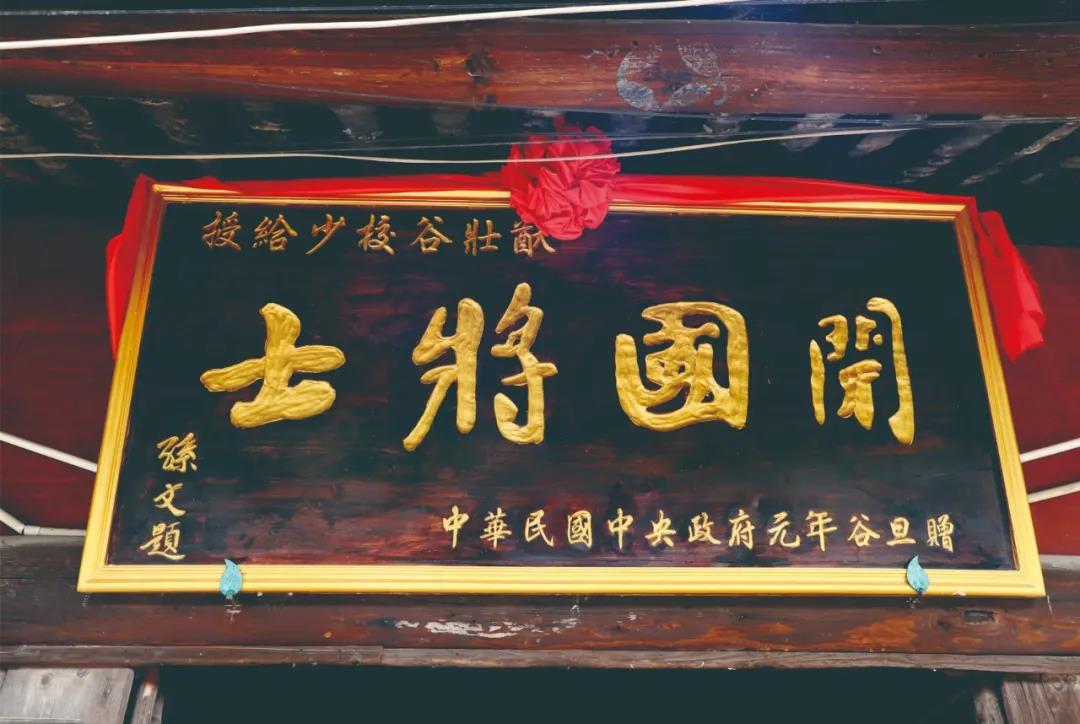 授給少校谷壯猷
開國將士
孫文題
中華民國中央政府元年谷旦贈